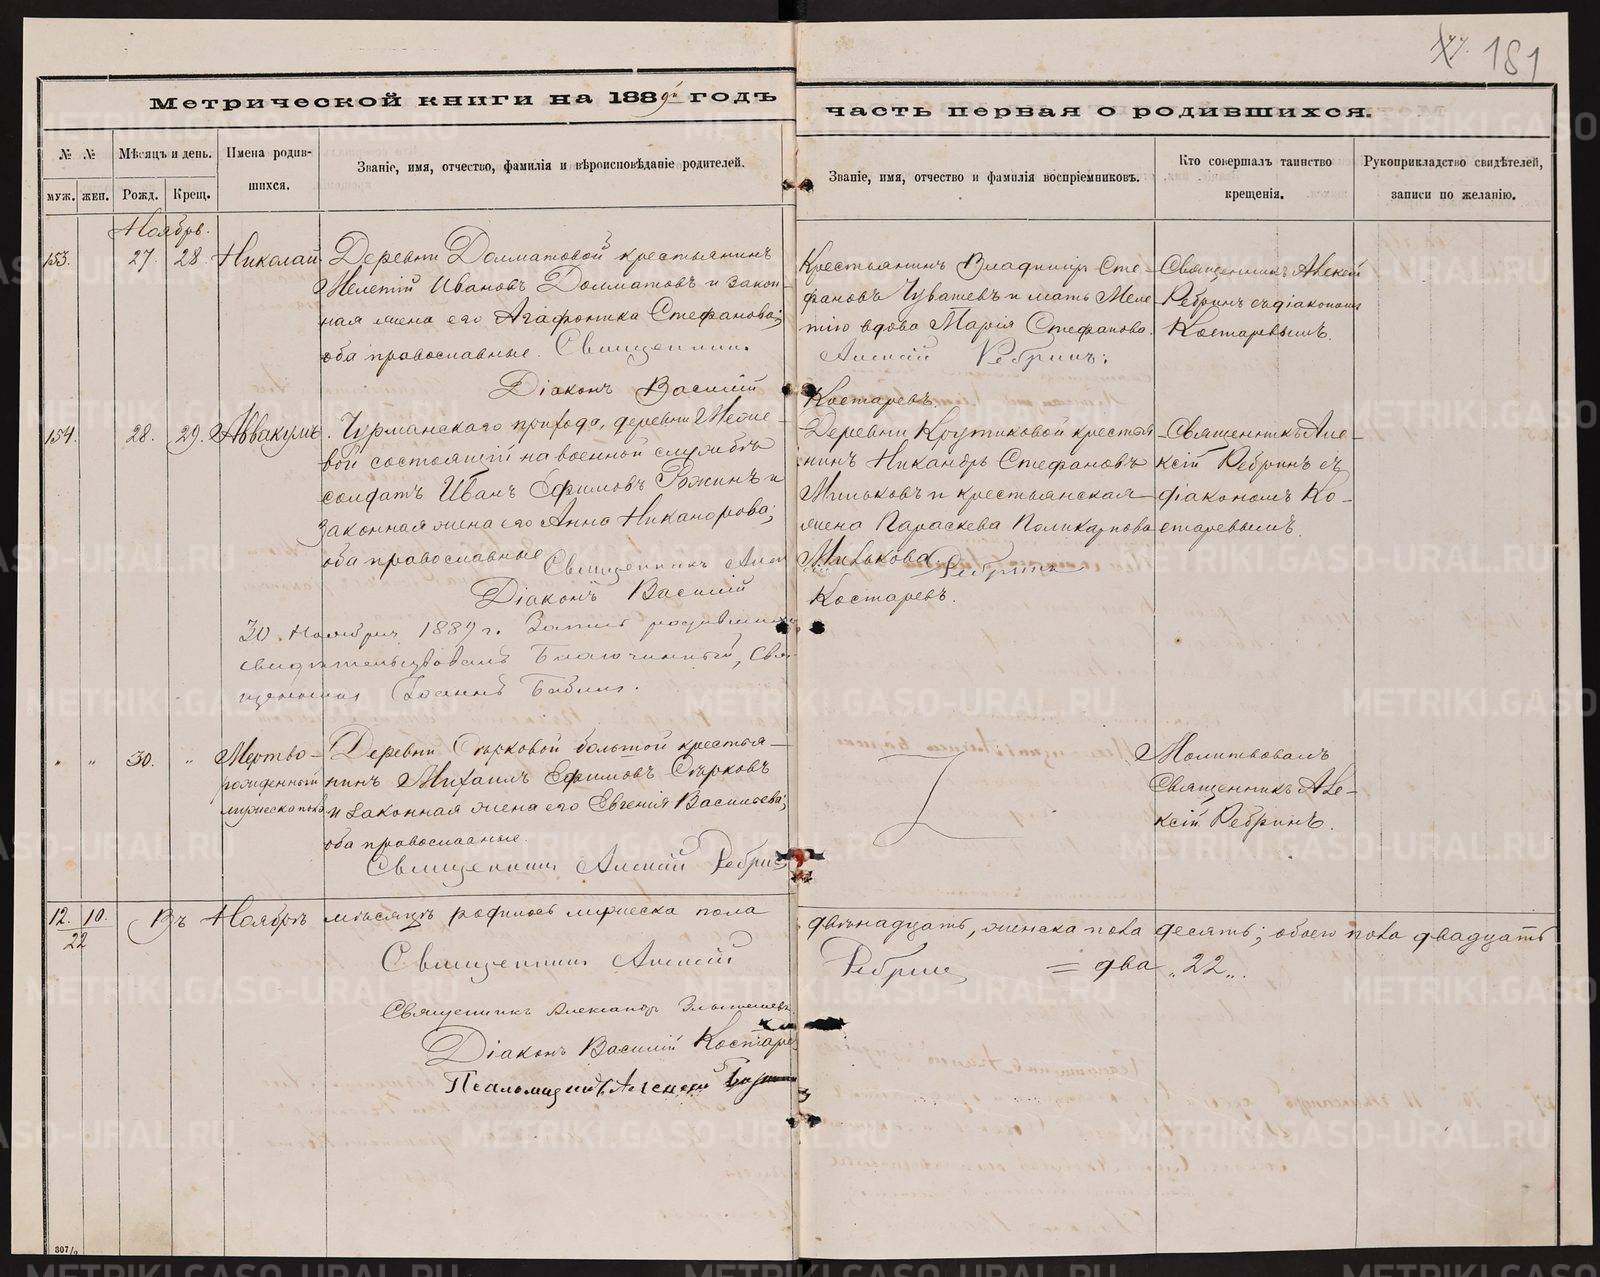 181
Метрической книги на 1889й годъ
часть первая о родившихся.
№ №
Мѣсяцъ и день.
Имена родив-
шихся.
Званіе, имя, отчество, фамилія и вѣроисповѣданіе родителей.
Званіе, имя, отчество и фамилія воспріемниковъ.
Кто совершалъ таинство
крещенія.
Рукоприкладство свидѣтелей,
записи по желанію.
муж. жен. Рожд. Крещ.
Ноябрь.
153. 27. 28. Николай
Деревни Долматовой крестьянинъ
Мелетій Ивановъ Долматовъ и закон-
ная жена его Агафоника Стефанова;
оба православные. Священникъ
Діаконъ Василій
Крестьянинъ Владиміръ Сте-
фановъ Чувашевъ и мать Меле-
тію вдова Марія Стефанова.
Алексій Ребринъ.
Костаревъ.
Священникъ Алексѣй
Ребринъ съ діакономъ
Костаревымъ.
154. 28. 29. Аввакумъ
Чурманскаго прихода, деревни
вой состоящій на военной службѣ
солдатъ Иванъ Ефимовъ и
законная жена его Анна Никанорова;
оба православные Священникъ Алек
Діаконъ Василій
Деревни Крутиковой крестья-
нинъ Никандръ Стефановъ
Миньковъ и крестьянская
жена Параскева Поликарпова
Минькова. Ребринъ
Костаревъ.
Священникъ Але-
ксій Ребринъ съ
діакономъ Ко-
старевымъ.
30 Ноября 1889 г. Запись родившихся
свидѣтельствовалъ Благочинный, Свя-
щенникъ Іоаннъ
„ „ 30. „ Мертво-
рожденный
мужеска пола
Деревни Сырковой большой крестья-
нинъ Михаилъ Ефимовъ Сырковъ
и законная жена его Евгенія Васильева;
оба православные.
Священникъ Алексій Ребринъ
Молитвовалъ
Священникъ Але-
ксій Ребринъ.
12. 10.
22
Въ Ноябрѣ мѣсяцѣ родилось мужеска пола
двѣнадцать, женска пола десять; обоего пола двадцать
= два „22„.
Священникъ Алексій
Ребринъ
Священникъ Александръ
Діаконъ Василій Костаре
Псаломщикъ Алексѣй
307/2
METRIKI.GASO-URAL.RU